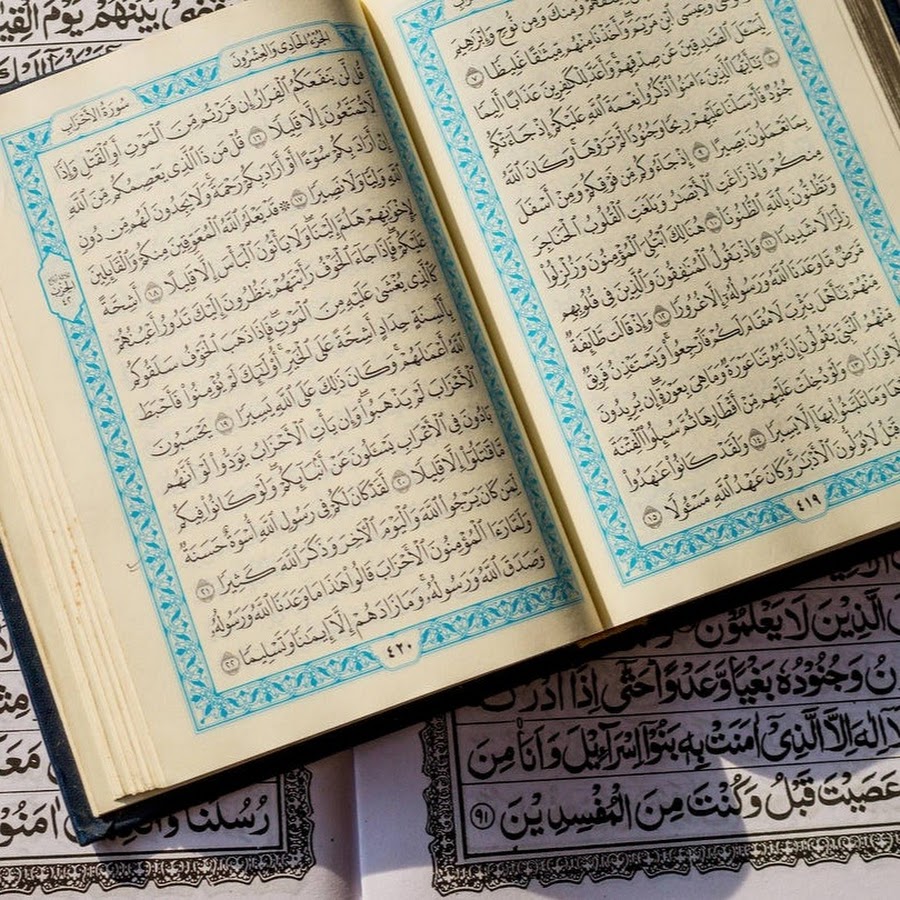 وَمِنكَ وَمِن نُّوحٍ وَإِبْرَٰهِيمَ
وَعِيسَى ٱبْنِ مَرْيَمَ وَأَخَذْنَا مِنْهُم مِّيثَٰقًا غَلِيظًا ٧
لِّيَسْـَٔلَ ٱلصَّٰدِقِينَ عَن صِدْقِهِمْ وَأَعَدَّ لِلْكَٰفِرِينَ عَذَابًا أَلِيمًا
٨ يَٰٓأَيُّهَا ٱلَّذِينَ ءَامَنُوا۟ ٱذْكُرُوا۟ نِعْمَةَ ٱللَّهِ عَلَيْكُمْ إِذْ جَآءَتْكُمْ
جُنُودٌ فَأَرْسَلْنَا عَلَيْهِمْ رِيحًا وَجُنُودًا لَّمْ تَرَوْهَا وَكَانَ ٱللَّهُ
بِمَا تَعْمَلُونَ بَصِيرًا ٩ إِذْ جَآءُوكُم مِّن فَوْقِكُمْ وَمِنْ أَسْفَلَ
مِنكُمْ وَإِذْ زَاغَتِ ٱلْأَبْصَٰرُ وَبَلَغَتِ ٱلْقُلُوبُ ٱلْحَنَاجِرَ
وَتَظُنُّونَ بِٱللَّهِ ٱلظُّنُونَا۠ ١٠ هُنَالِكَ ٱبْتُلِىَ ٱلْمُؤْمِنُونَ وَزُلْزِلُوا۟
زِلْزَالًا شَدِيدًا ١١ وَإِذْ يَقُولُ ٱلْمُنَٰفِقُونَ وَٱلَّذِينَ فِى قُلُوبِهِم
مَّرَضٌ مَّا وَعَدَنَا ٱللَّهُ وَرَسُولُهُۥٓ إِلَّا غُرُورًا ١٢ وَإِذْ قَالَت طَّآئِفَةٌ
مِّنْهُمْ يَٰٓأَهْلَ يَثْرِبَ لَا مُقَامَ لَكُمْ فَٱرْجِعُوا۟ وَيَسْتَـْٔذِنُ فَرِيقٌ
مِّنْهُمُ ٱلنَّبِىَّ يَقُولُونَ إِنَّ بُيُوتَنَا عَوْرَةٌ وَمَا هِىَ بِعَوْرَةٍ إِن يُرِيدُونَ
إِلَّا فِرَارًا ١٣ وَلَوْ دُخِلَتْ عَلَيْهِم مِّنْ أَقْطَارِهَا ثُمَّ سُئِلُوا۟ ٱلْفِتْنَةَ
وَمَا تَلَبَّثُوا۟ بِهَآ إِلَّا يَسِيرًا ١٤ وَلَقَدْ كَانُوا۟ عَٰهَدُوا۟
قَبْلُ لَا يُوَلُّونَ ٱلْأَدْبَٰرَ وَكَانَ عَهْدُ ٱللَّهِ مَسْـُٔولًا ١٥
٤١٩
الجزء الحادي والعشرون
سورة الأحزاب
قُل لَّن يَنفَعَكُمُ ٱلْفِرَارُ إِن فَرَرْتُم مِّنَ ٱلْمَوْتِ أَوِ ٱلْقَتْلِ وَإِذًا
لَّا تُمَتَّعُونَ إِلَّا قَلِيلًا ١٦ قُلْ مَن ذَا ٱلَّذِى يَعْصِمُكُم مِّنَ ٱللَّهِ
إِنْ أَرَادَ بِكُمْ سُوٓءًا أَوْ أَرَادَ بِكُمْ رَحْمَةً وَلَا يَجِدُونَ لَهُم مِّن دُونِ
ٱللَّهِ وَلِيًّا وَلَا نَصِيرًا ١٧ ۞ قَدْ يَعْلَمُ ٱللَّهُ ٱلْمُعَوِّقِينَ مِنكُمْ وَٱلْقَآئِلِينَ
لِإِخْوَٰنِهِمْ هَلُمَّ إِلَيْنَا وَلَا يَأْتُونَ ٱلْبَأْسَ إِلَّا قَلِيلًا ١٨ أَشِحَّةً
عَلَيْكُمْ فَإِذَا جَآءَ ٱلْخَوْفُ رَأَيْتَهُمْ يَنظُرُونَ إِلَيْكَ تَدُورُ أَعْيُنُهُمْ
كَٱلَّذِى يُغْشَىٰ عَلَيْهِ مِنَ ٱلْمَوْتِ فَإِذَا ذَهَبَ ٱلْخَوْفُ سَلَقُوكُم
بِأَلْسِنَةٍ حِدَادٍ أَشِحَّةً عَلَى ٱلْخَيْرِ أُو۟لَٰٓئِكَ لَمْ يُؤْمِنُوا۟ فَأَحْبَطَ
ٱللَّهُ أَعْمَٰلَهُمْ وَكَانَ ذَٰلِكَ عَلَى ٱللَّهِ يَسِيرًا ١٩ يَحْسَبُونَ
ٱلْأَحْزَابَ لَمْ يَذْهَبُوا۟ وَإِن يَأْتِ ٱلْأَحْزَابُ يَوَدُّوا۟ لَوْ أَنَّهُم
بَادُونَ فِى ٱلْأَعْرَابِ يَسْـَٔلُونَ عَنْ أَنۢبَآئِكُمْ وَلَوْ كَانُوا۟ فِيكُم
مَّا قَٰتَلُوٓا۟ إِلَّا قَلِيلًا ٢٠ لَّقَدْ كَانَ لَكُمْ فِى رَسُولِ ٱللَّهِ أُسْوَةٌ حَسَنَةٌ
لِّمَن كَانَ يَرْجُوا۟ ٱللَّهَ وَٱلْيَوْمَ ٱلْءَاخِرَ وَذَكَرَ ٱللَّهَ كَثِيرًا ٢١
وَلَمَّا رَءَا ٱلْمُؤْمِنُونَ ٱلْأَحْزَابَ قَالُوا۟ هَٰذَا مَا وَعَدَنَا ٱللَّهُ وَرَسُولُهُۥ
وَصَدَقَ ٱللَّهُ وَرَسُولُهُۥ وَمَا زَادَهُمْ إِلَّآ إِيمَٰنًا وَتَسْلِيمًا ٢٢
٤٢٠
بَيْنَهُمْ يَوْمَ
الَّذِينَ لَا يَعْلَمُونَ
وَجُنُوْدُهٗ بَغْيًا وَّعَدْوًا حَتّٰۤى اِذَاۤ اَدْرَكَ
اِلٰهَ اِلَّا الَّذِیْۤ اٰمَنَتْ بِهٖ بَنُوْۤا اِسْرَآءِیْلَ وَ اَنَا مِنَ
عَصَيْتَ قَبْلُ وَكُنْتَ مِنَ الْمُفْسِدِيْنَ ٩١
رُسُلَنَا